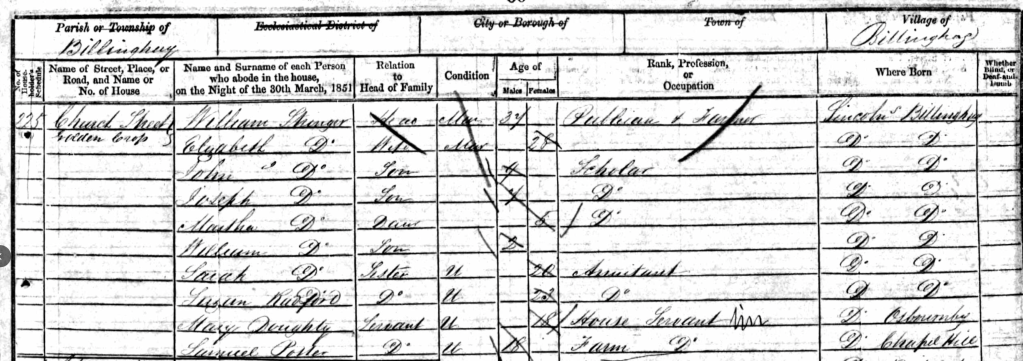 Parish or Township of Ecclesiastical District of City or Borough of Town of Village of
Billinghay Billinghay
No. of House-holder's Schedule Name of Street, Place, or Road, and Name or No. of House Name and Surname of each Person who abode in the house, on the Night of the 30th March, 1851 Relation to Head of Family Condition Age of Males Females Rank, Profession, or Occupation Where Born Whether Blind, or Deaf-and-Dumb
225 Church Street William Stringer Head Mar 37 Publican & Farmer Lincolns Billinghay
Golden Crop Elizabeth Do Wife Mar 28 Do Do
John Do Son Scholar Do Do
Joseph Do Son Do Do Do
Martha Do Daur Do Do Do
William Do Son 2 Do Do
Sarah Do Sister U 20 Do Do
Susan Do U 23 Do Do Do
Mary Doughty Servant U 18 House Servant Inn Do Osbournby
Samuel Do U 18 Farm Do Do Chapel Hill